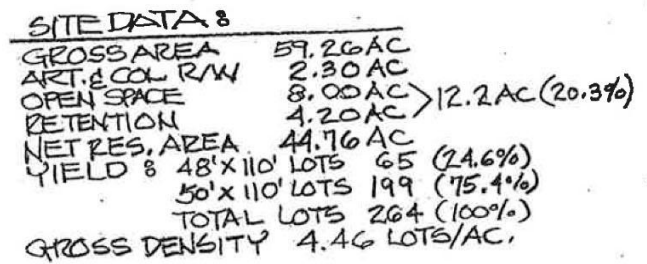 SITE DATA:
GROSS AREA 59.26 AC
ART. & COL R/W 2.30 AC
OPEN SPACE 8.00 AC
RETENTION 4.20 AC > 12.2 AC (20.3%)
NET RES. AREA 44.76 AC
YIELD: 48' X 110' LOTS 65 (24.6%)
50' X 110' LOTS 199 (75.4%)
TOTAL LOTS 264 (100%)
GROSS DENSITY 4.46 LOTS/AC.